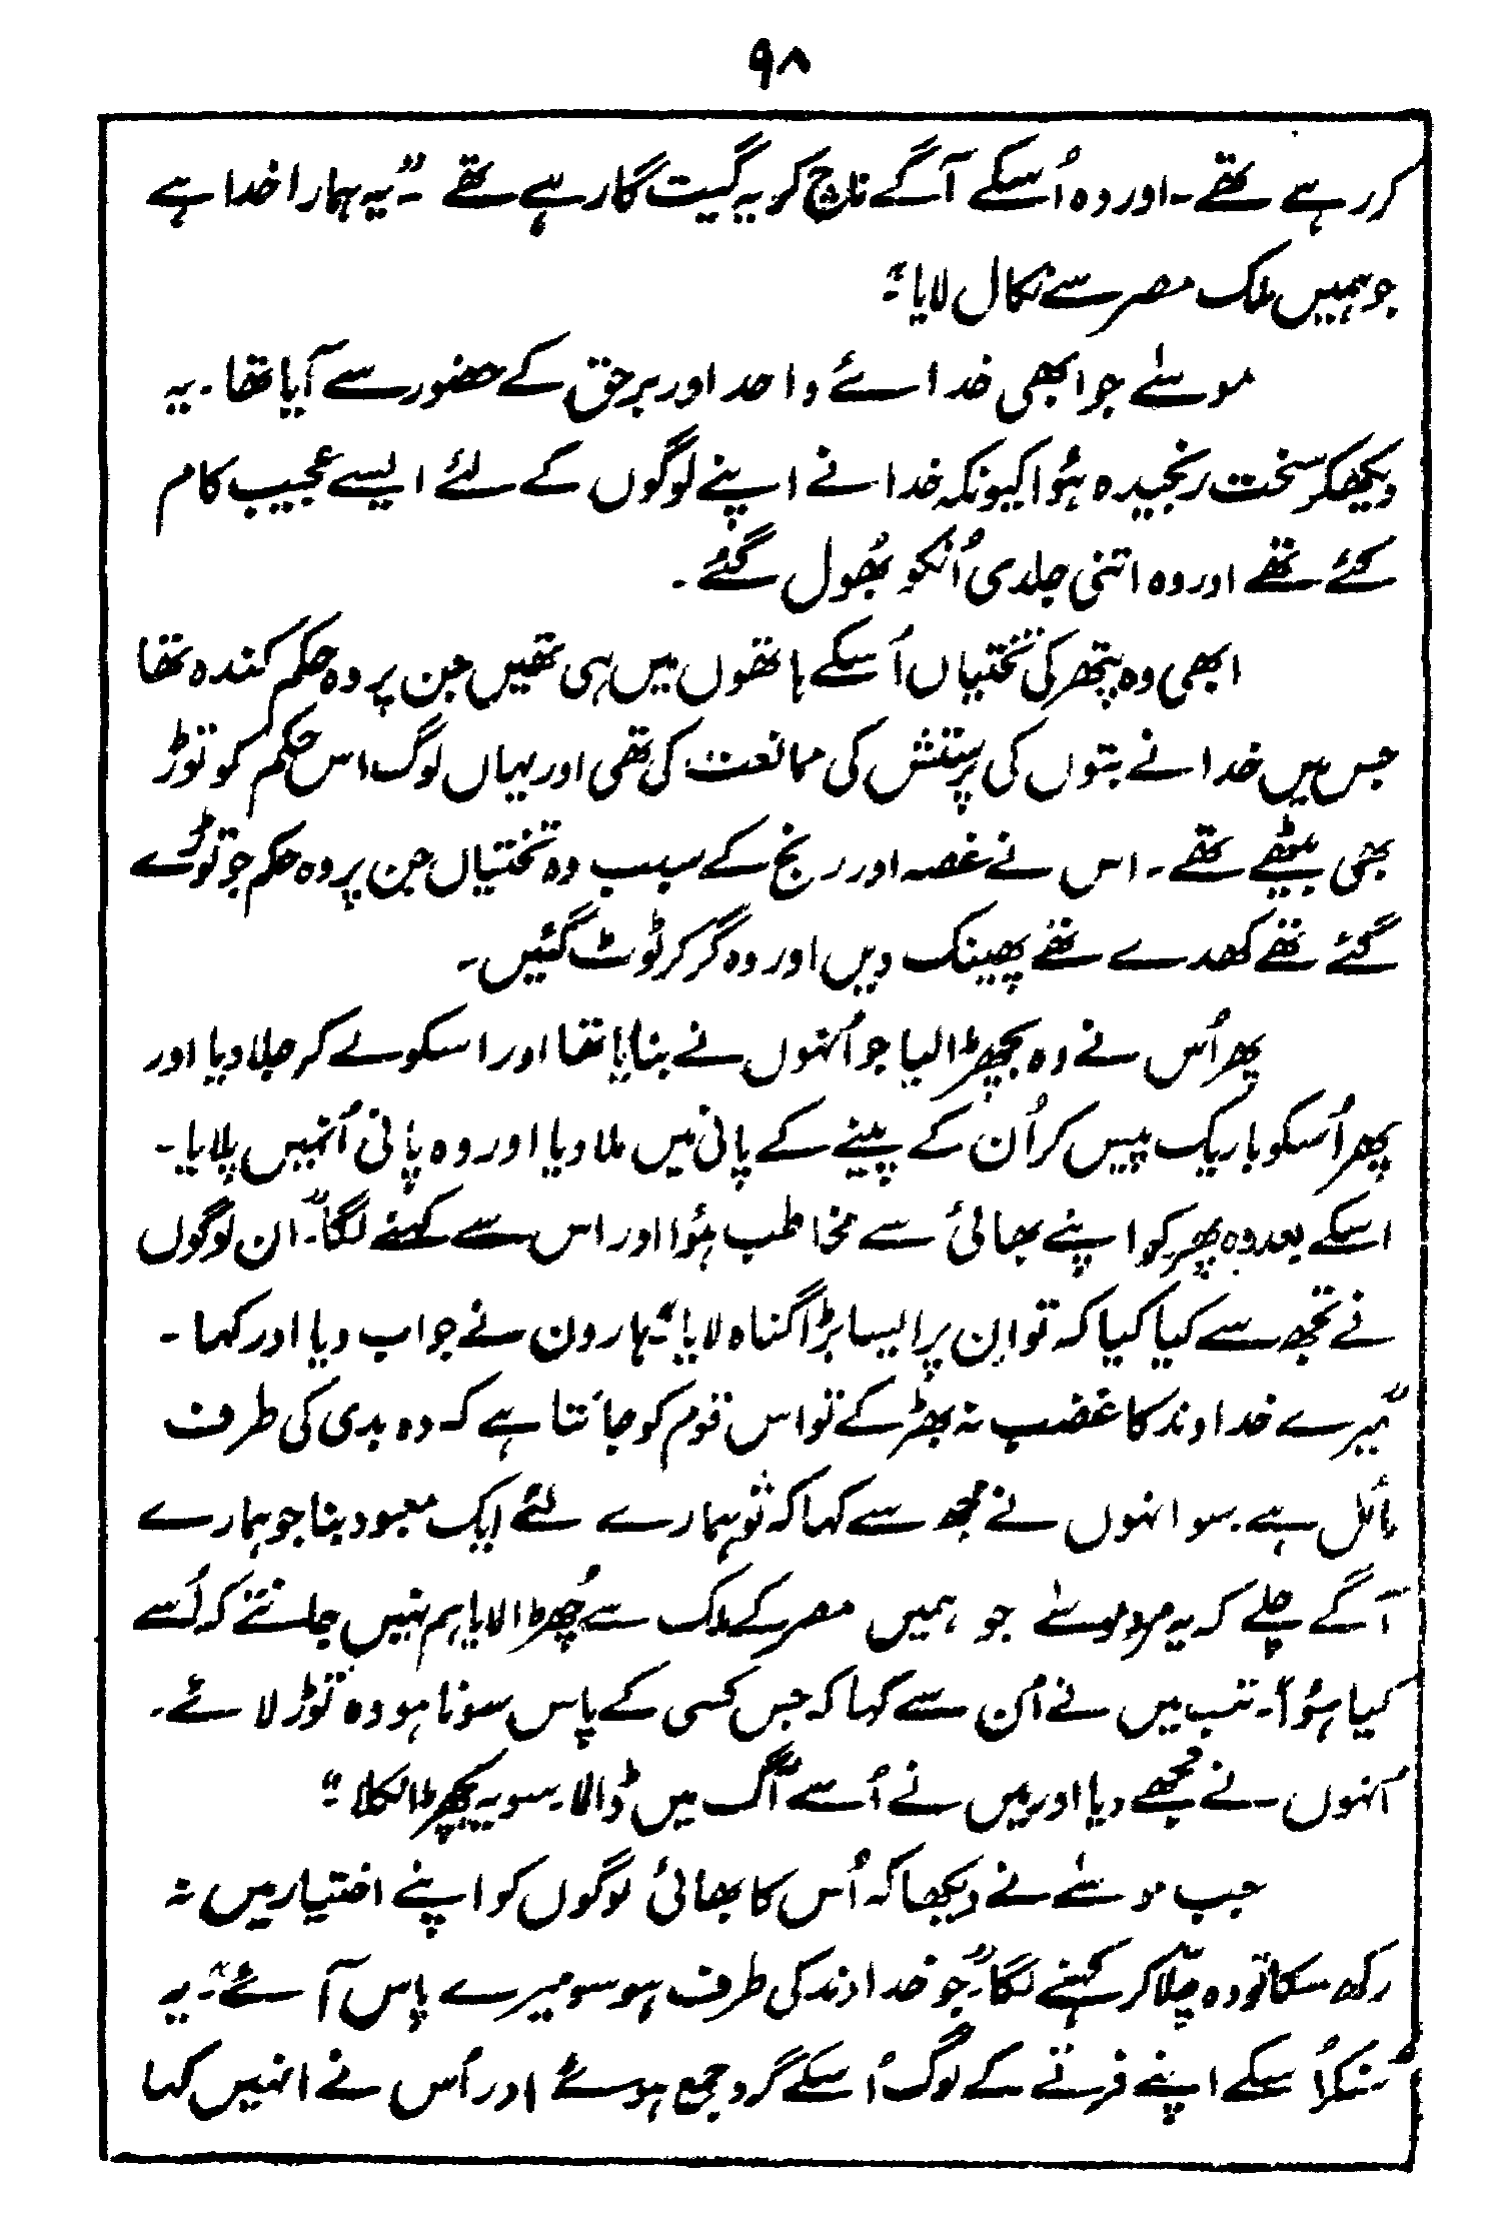 ۹۸
کر رہے تھے۔ اور وہ اُسکے آگے ناچ کر یہ گیت گا رہے تھے ۔ "یہ ہمارا خدا ہے
جو ہمیں ملک مصر سے نکال لایا"۔
موسٰے جو ابھی خدائے واحد اور برحق کے حضور سے آیا تھا۔ یہ
دیکھکر سخت رنجیدہ ہؤا کیونکہ خدا نے اپنے لوگوں کے لئے ایسے عجیب کام
کئے تھے اور وہ اتنی جلدی اُنکو بھُول گئے۔
ابھی وہ پتھر کی تختیاں اُسکے ہاتھوں میں ہی تھیں جن پر وہ حکم کندہ تھا
جس میں خدا نے بتوں کی پرستش کی ممانعت کی تھی اور یہاں لوگ اس حکم کو توڑ
بھی بیٹھے تھے۔ اس نے غصہ اور رنج کے سبب وہ تختیاں جن پر وہ حکم جو توڑے
گئے تھے کھدے تھے پھینک دیں اور وہ گر کر ٹوٹ گئیں۔
پھر اُس نے وہ بچھڑا لیا جو اُنہوں نے بنایا تھا اور اسکو لے کر جلا دیا اور
پھر اُسکو باریک پیس کر اُن کے پینے کے پانی میں ملا دیا اور وہ پانی اُنہیں پلایا۔
اسکے بعد وہ پھر کو اپنے بھائی سے مخاطب ہؤا اور اس سے کہنے لگا۔ "ان لوگوں
نے تجھ سے کیا کیا کہ تو اِن پر ایسا بڑا گناہ لایا"۔ ہارون نے جواب دیا اور کہا۔
"میرے خداوند کا غضب نہ بھڑکے تو اس قوم کو جانتا ہے کہ وہ بدی کی طرف
مائل ہے۔ سو انہوں نے مجھ سے کہا کہ تُو ہمارے لئے ایک معبود بنا جو ہمارے
آگے چلے کہ یہ مرد موسٰے جو ہمیں مصر کے ملک سے چُھڑا لایا ہم نہیں جانتے کہ اُسے
کیا ہؤا۔ تب میں نے اُن سے کہا کہ جس کسی کے پاس سونا ہو وہ توڑ لائے۔
اُنہوں نے مُجھے دیا اور میں نے اُسے آگ میں ڈالا۔ سو یہ بچھڑا نکلا"۔
جب موسٰے نے دیکھا کہ اُس کا بھائی لوگوں کو اپنے اختیار میں نہ
رکھ سکا تو وہ چِلّا کر کہنے لگا۔ "جو خداوند کی طرف ہو سو میرے پاس آئے"۔ یہ
سُنکر اُسکے اپنے فرقے کے لوگ اُسکے گرد جمع ہوئے اور اُس نے انہیں کہا